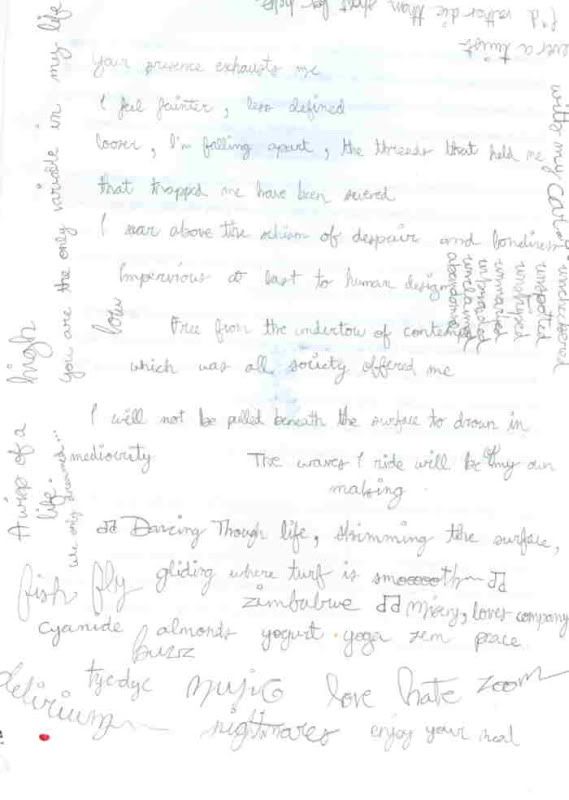 I'd rather die than shout for help.
ever a twist
Your presence exhausts me
I feel fainter, less defined
looser, I'm falling apart, the threads that held me
that trapped me have been severed
I soar above the schism of despair and loneliness
Impervious at last to human design
Free from the undertow of contempt
which was all society offered me
I will not be pulled beneath the surface to drown in
mediocrity The waves I ride will be of my own
making.
♫ Dancing Though life, skimming the surface,
gliding where turf is smooooooth ♫
fish fly
zimbabwe ♫ Misery, loves company
cyanide almonds yogurt yoga zen peace
buzz
tyedye music love hate zoom
delirium nightmares enjoy your meal
You are the only variable in my life
high
low
A wisp of a
life.
we only dreamed...
abandoned
unclaimed
unmarked
unstriped
unspotted
uncheckered